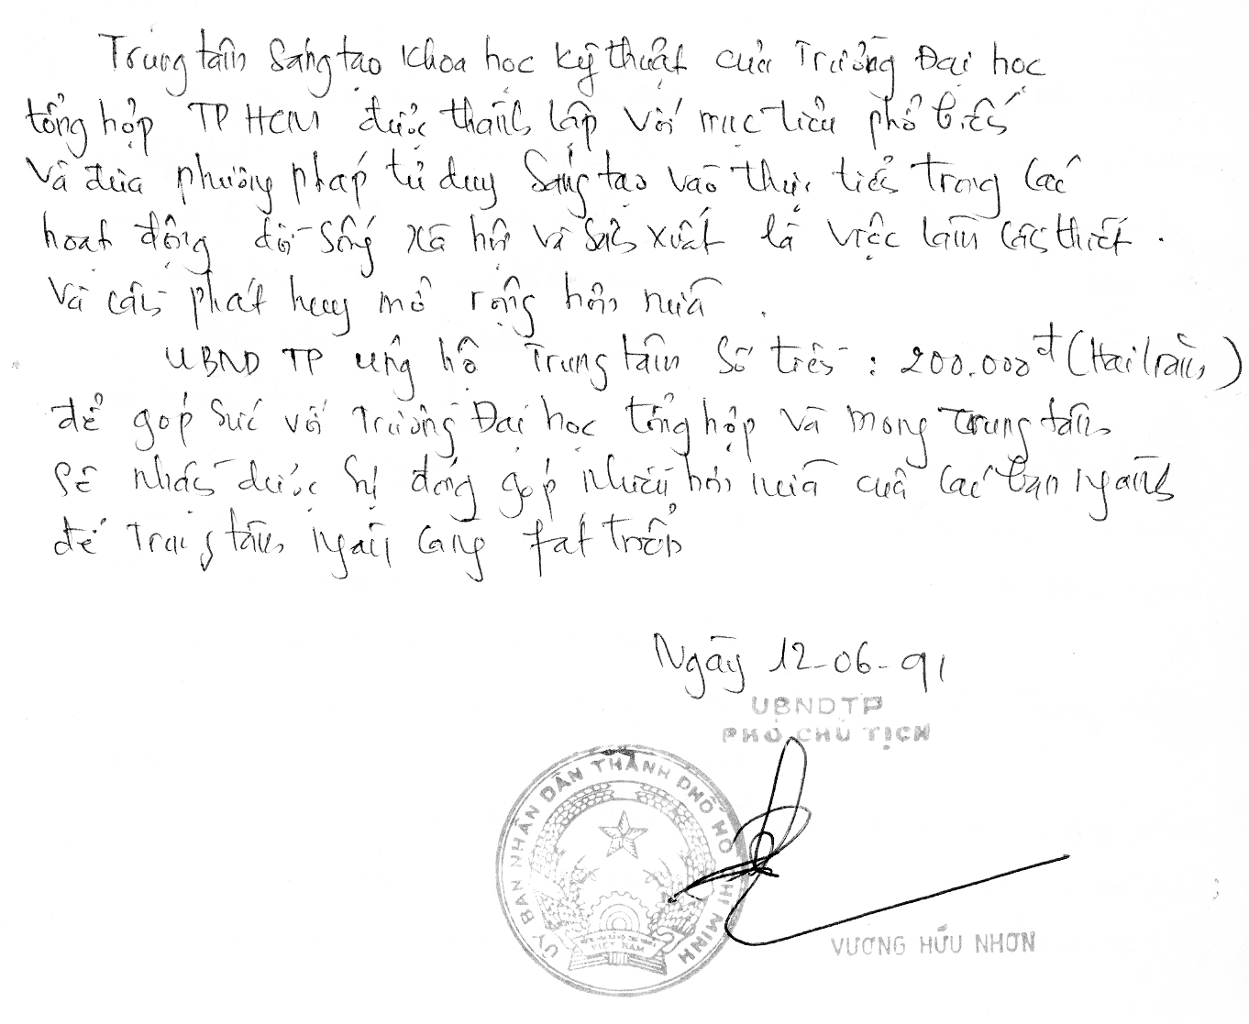 Trung tâm Sáng tạo Khoa học kỹ thuật của Trường Đại học
tổng hợp TP HCM được thành lập với mục tiêu phổ biến
và đưa phương pháp tư duy Sáng tạo vào thực tiễn trong các
hoạt động đời sống xã hội và sản xuất là việc làm cần thiết.
Và cần phát huy mở rộng hơn nữa.
UBND TP ủng hộ Trung tâm Số tiền: 200.000đ (Hai trăm)
để góp sức với Trường Đại học tổng hợp và mong Trung tâm
sẽ nhận được sự đóng góp nhiều hơn nữa của các ban ngành
để Trung tâm ngày càng fát triển
Ngày 12-06-91
UBNDTP
PHÓ CHỦ TỊCH
ỦY BAN NHÂN DÂN THÀNH PHỐ HỒ CHÍ MINH
VIỆT NAM
VƯƠNG HỮU NHƠN